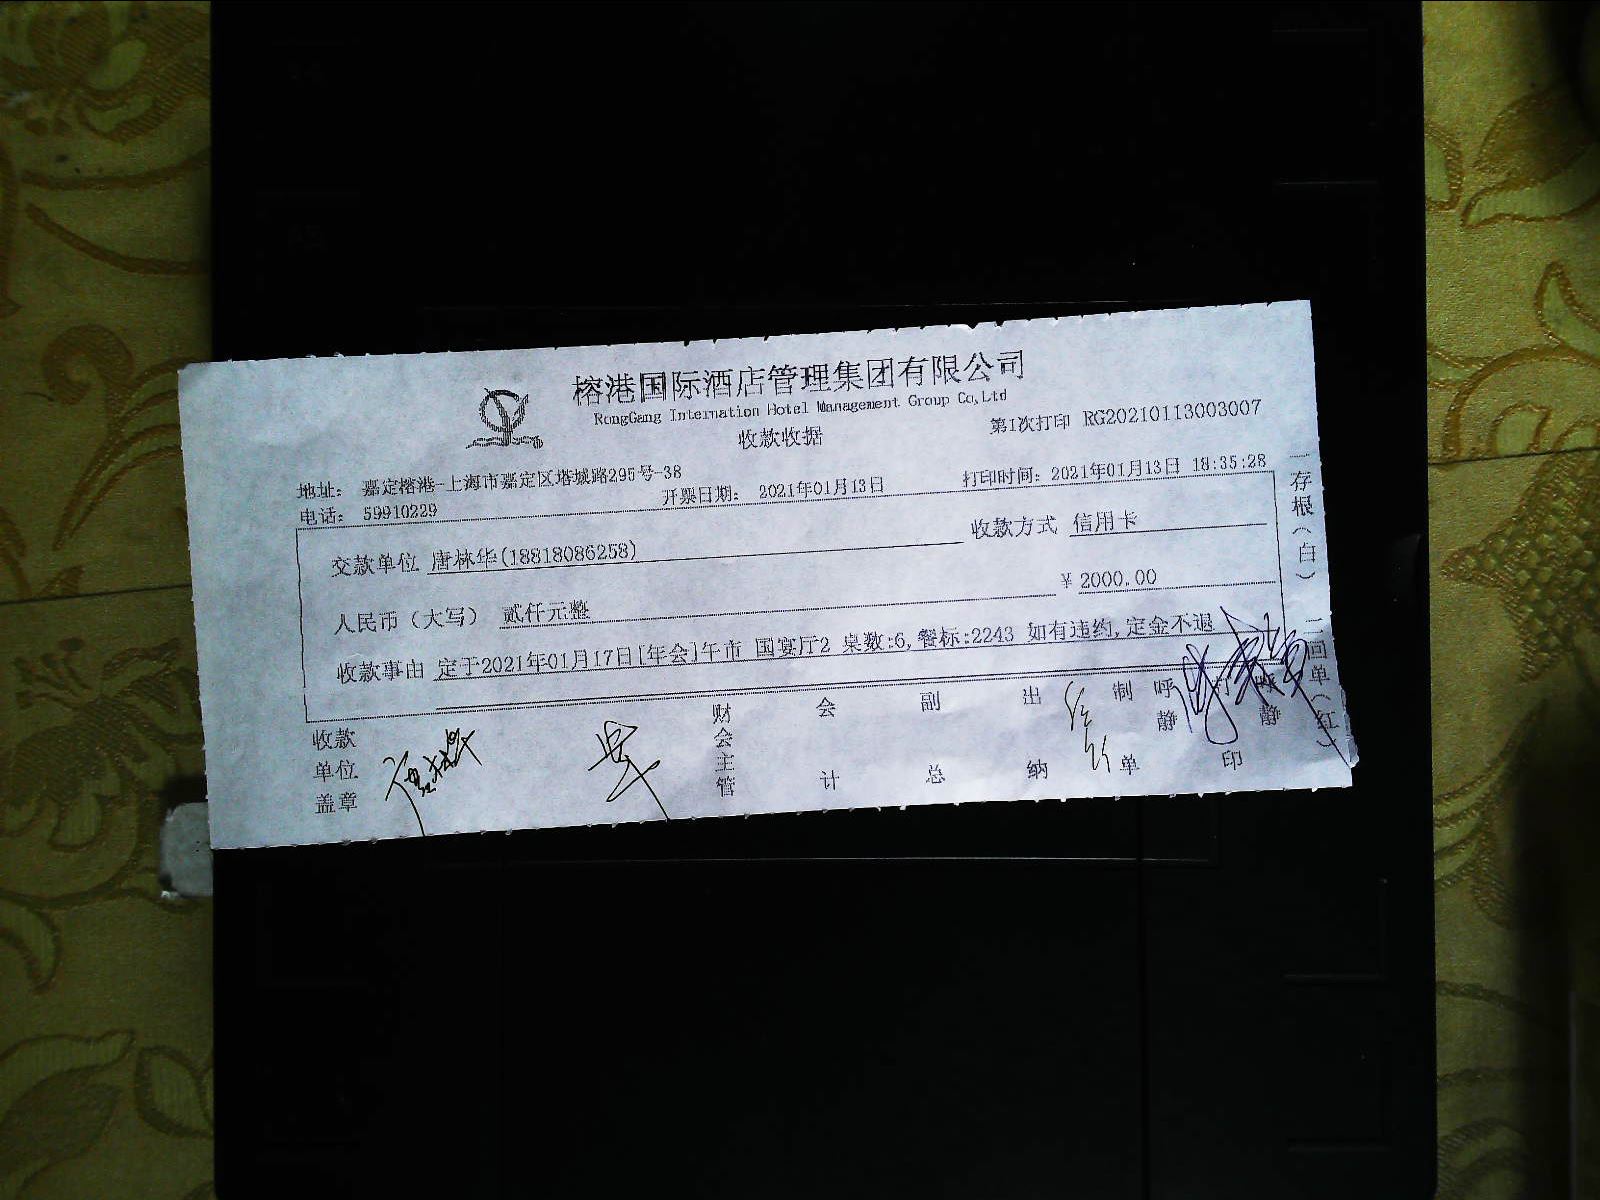 榕港国际酒店管理集团有限公司
RongGang Internation Hotel Management Group Co,Ltd
收款收据
第1次打印 RG20210113003007
地址: 嘉定榕港-上海市嘉定区塔城路295号-38
电话: 59910229
开票日期: 2021年01月13日
打印时间: 2021年01月13日 18:35:28
交款单位 唐林华(18818086258)
收款方式 信用卡
人民币(大写) 贰仟元整
¥ 2000.00
收款事由 定于2021年01月17日[年会]午市 国宴厅2 桌数:6,餐标:2243 如有违约,定金不退
收款单位盖章
财会主管
会计
副总
出纳
制单
呼静
打印
呼静
一存根(白) 二回单(红)